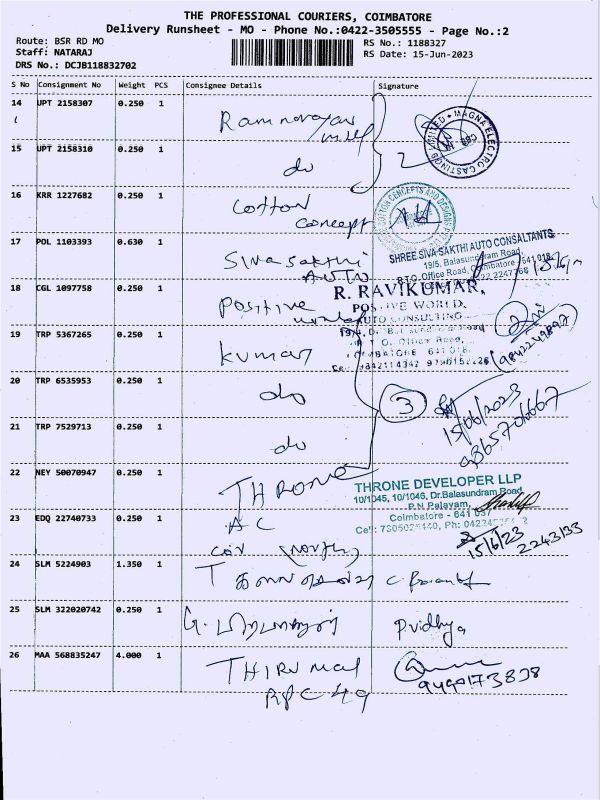 THE PROFESSIONAL COURIERS, COIMBATORE
Delivery Runsheet - MO - Phone No.:0422-3505555 - Page No.:2
Route: BSR RD MO
RS No.: 1188327
Staff: NATARAJ
RS Date: 15-Jun-2023
DRS No.: DCJB118832702
S No Consignment No Weight PCS Consignee Details Signature
14 UPT 2158307 0.250 1 Ramnarayan mill
MAGNA ELECTRO CASTINGS LIMITED
15 UPT 2158310 0.250 1 do 2
16 KRR 1227682 0.250 1 Cotton Concept
17 POL 1103393 0.630 1 Sivasakthi AUTO
SHREE SIVA SAKTHI AUTO CONSULTANTS
19/5, Balasundram Road,
R.T.O. Office Road, Coimbatore - 641 018.
18 CGL 1097758 0.250 1 Positive world
R. RAVIKUMAR,
POSITIVE WORLD.
AUTO CONSULTING
19 TRP 5367265 0.250 1 Kumar
R T O. Office Road,
COIMBATORE 641 018.
9842249897
20 TRP 6535953 0.250 1 do 3
15/06/2023
21 TRP 7529713 0.250 1 do
22 NEY 50070947 0.250 1 THRONE
THRONE DEVELOPER LLP
10/1045, 10/1046, Dr.Balasundram Road
P.N Palayam,
Coimbatore - 641 037
23 EDQ 22740733 0.250 1 A C
Cor (North)
15/6/23
2243133
24 SLM 5224903 1.350 1 T
25 SLM 322020742 0.250 1 G. P.vidhya
26 MAA 568835247 4.000 1 THIRUMAL
RPC 49